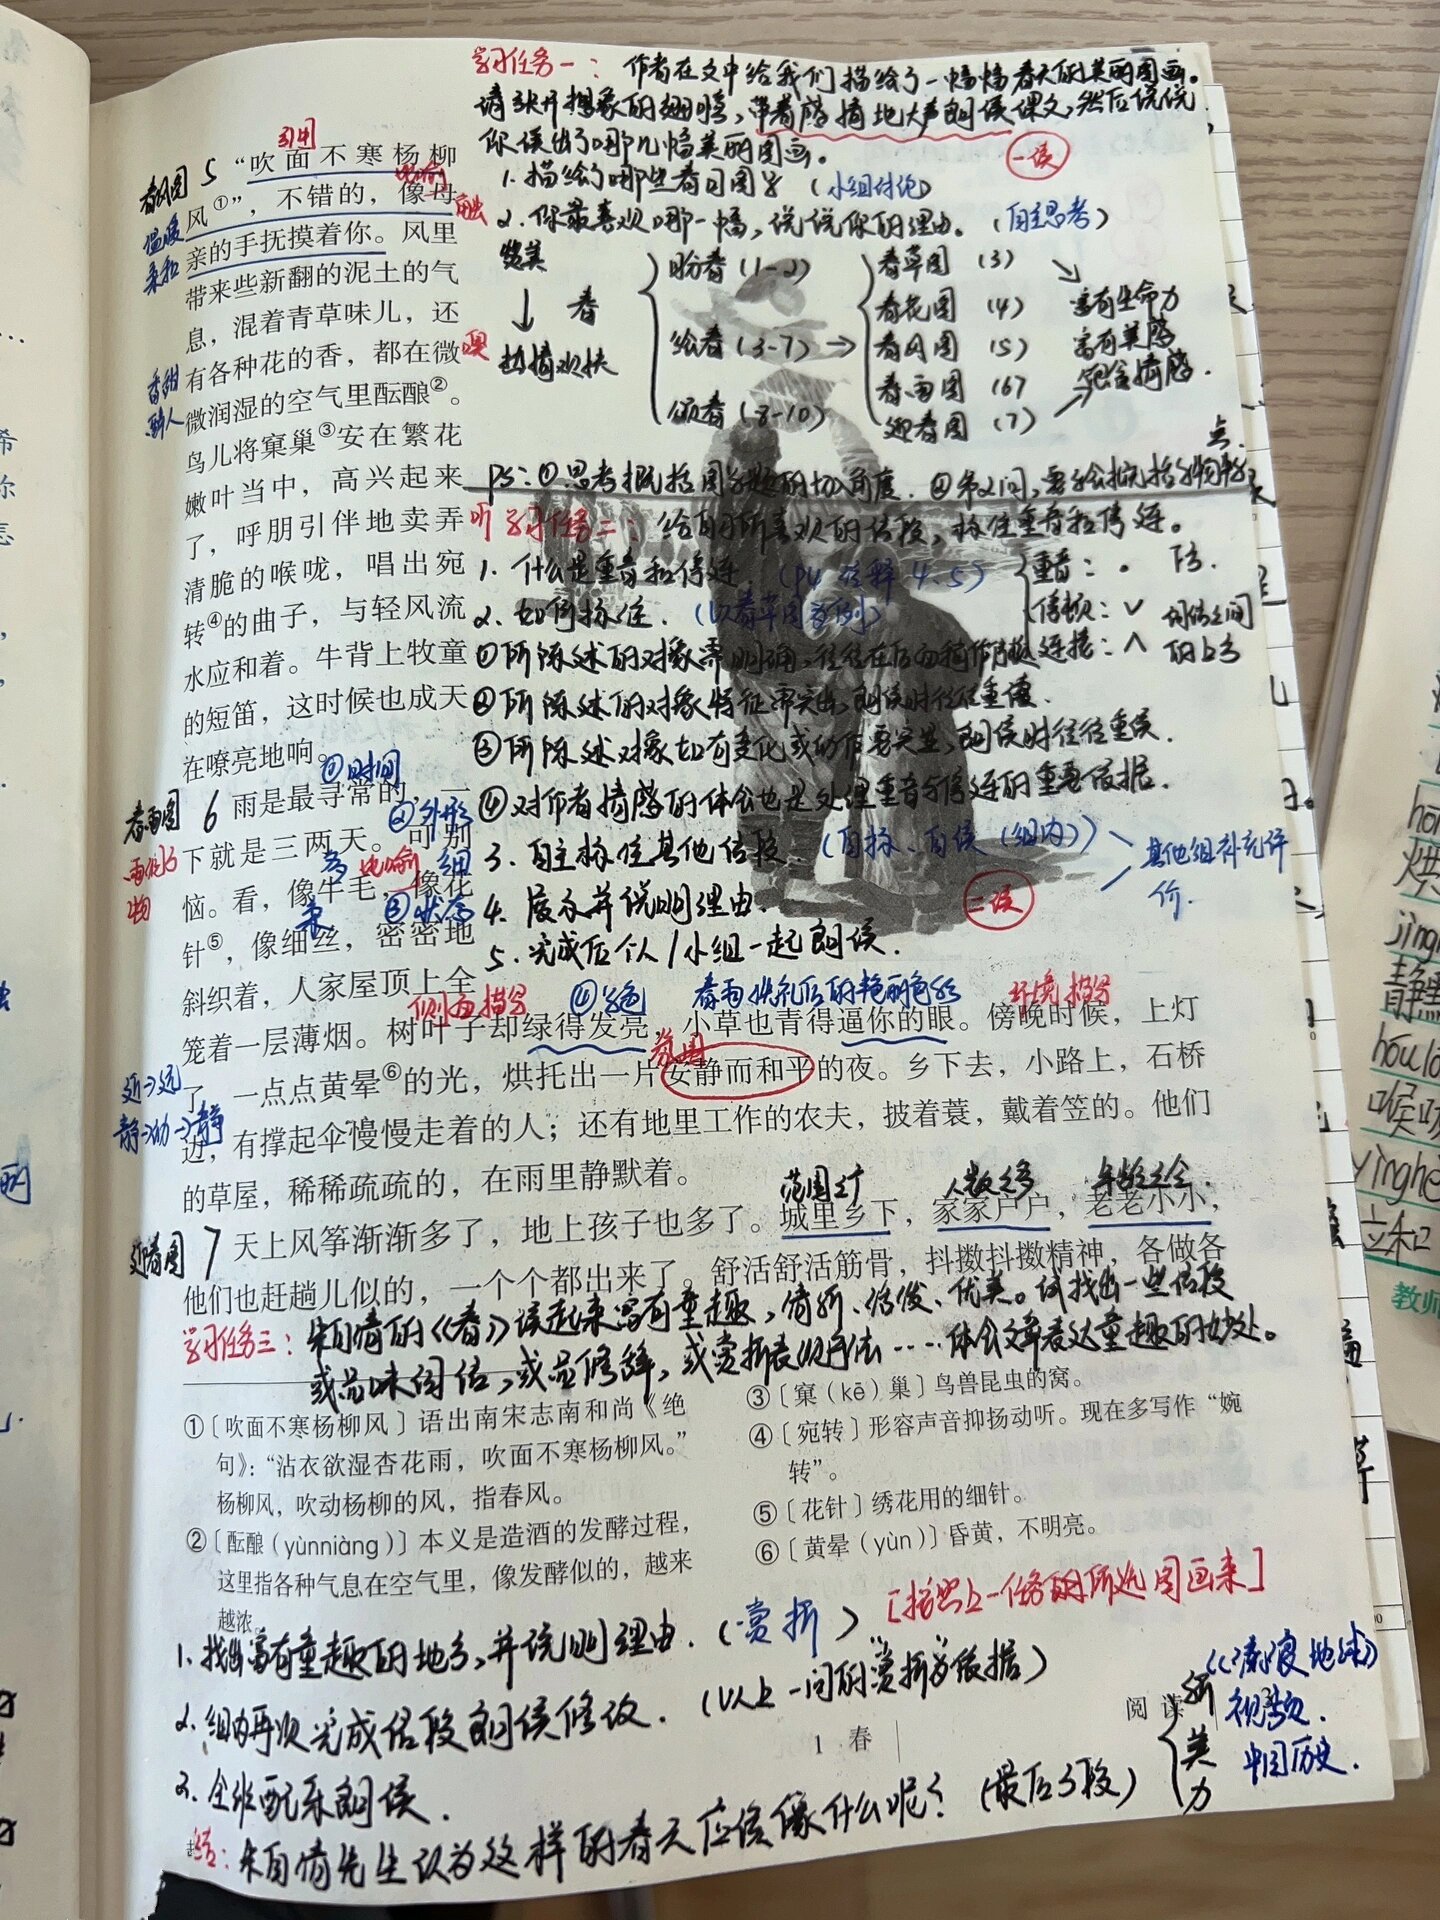 学习任务一：作者在文中给我们描绘了一幅幅春天的美丽图画。
请张开想象的翅膀，带着感情地大声朗读课文，然后说说
你读出了哪几幅美丽图画。
一读
1. 描绘了哪些春日图景（小组讨论）
2. 你最喜欢哪一幅，说说你的理由。（自主思考）
赞美
↓ 春
热情欢快
盼春（1-2）
绘春（3-7）→
颂春（8-10）
春草图（3）
春花图（4）
春风图（5）
春雨图（6）
迎春图（7）
富有生命力
富有美感
饱含情感.
PS：①思考概括图景题的切入角度. ②第2问，要学会概括景物特点.
听 学习任务二：给自己所喜欢的语段，标注重音和停连。
1. 什么是重音和停连.（P4 注释 4、5）
重音：. 下方.
停顿：∨ 词语之间
连接：∧ 的上方
2. 如何标注.（以春草图为例）
①所陈述的对象需明确，往往在后面稍作停顿
②所陈述的对象特征需突出，朗读时往往重读.
③所陈述对象如有变化或动作要突出，朗读时往往重读.
④对作者情感的体会也是处理重音与停连的重要依据.
3. 自主标注其他语段.（自标、自读（组内））
其他组补充评
价.
4. 展示并说明理由.
二读
5. 完成后个人/小组一起朗读.
引用
春风图
5 “吹面不寒杨柳
比喻
风①”，不错的，像母
触
温暖
柔和
亲的手抚摸着你。风里
带来些新翻的泥土的气
息，混着青草味儿，还
嗅
有各种花的香，都在微
香甜
醉人
微润湿的空气里酝酿②。
鸟儿将窠巢③安在繁花
嫩叶当中，高兴起来
了，呼朋引伴地卖弄
清脆的喉咙，唱出宛
转④的曲子，与轻风流
水应和着。牛背上牧童
的短笛，这时候也成天
在嘹亮地响。
①时间
春雨图
6 雨是最寻常的，一
②外形
下就是三两天。可别
多 比喻 细
恼。看，像牛毛，像花
柔 ③状态
针⑤，像细丝，密密地
斜织着，人家屋顶上全
侧面描写 ④色 春雨洗礼后的艳丽色彩 环境描写
笼着一层薄烟。树叶子却绿得发亮，小草也青得逼你的眼。傍晚时候，上灯
氛围
近→远
了，一点点黄晕⑥的光，烘托出一片安静而和平的夜。乡下去，小路上，石桥
静→动→静
边，有撑起伞慢慢走着的人；还有地里工作的农夫，披着蓑，戴着笠的。他们
的草屋，稀稀疏疏的，在雨里静默着。
范围之广 人数之多 年龄之全.
迎春图
7 天上风筝渐渐多了，地上孩子也多了。城里乡下，家家户户，老老小小，
他们也赶趟儿似的，一个个都出来了。舒活舒活筋骨，抖擞抖擞精神，各做各
学习任务三：朱自清的《春》读起来富有童趣，清新、活泼、优美。试找出一些语段
或品味词语，或品修辞，或赏析表现手法……体会文章表达童趣的妙处。
①〔吹面不寒杨柳风〕语出南宋志南和尚《绝
句》：“沾衣欲湿杏花雨，吹面不寒杨柳风。”
杨柳风，吹动杨柳的风，指春风。
②〔酝酿（yùnniàng）〕本义是造酒的发酵过程，
这里指各种气息在空气里，像发酵似的，越来
越浓。
③〔窠（kē）巢〕鸟兽昆虫的窝。
④〔宛转〕形容声音抑扬动听。现在多写作“婉
转”。
⑤〔花针〕绣花用的细针。
⑥〔黄晕（yùn）〕昏黄，不明亮。
［按照上一任务的所选图画来］
1. 找出富有童趣的地方，并说明理由.（赏析）
2. 组内再次完成语段朗读修改.（以上一问的“赏析”为依据）
3. 全班配乐朗读.
阅读
1 春
结：朱自清先生认为这样的春天应该像什么呢？（最后3段）
新
美
力
《流浪地球》
视频.
中国历史.